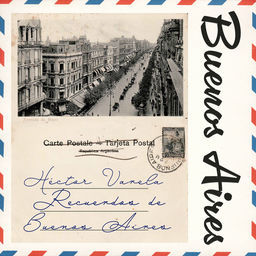 Buenos Aires
Carte Postale — Tarjeta Postal
República Argentina
Héctor Varela
Recuerdos de
Buenos Aires